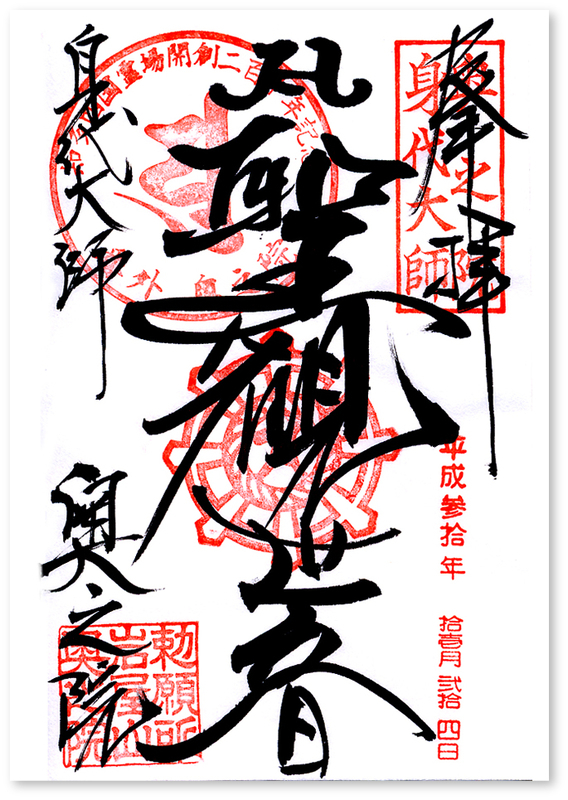 奉拝
奥之院
身代大師
平成参拾年
拾壱月 弐拾四日
聖観世音
身代大師
奥之院
勅願所
岩屋山
奥之院